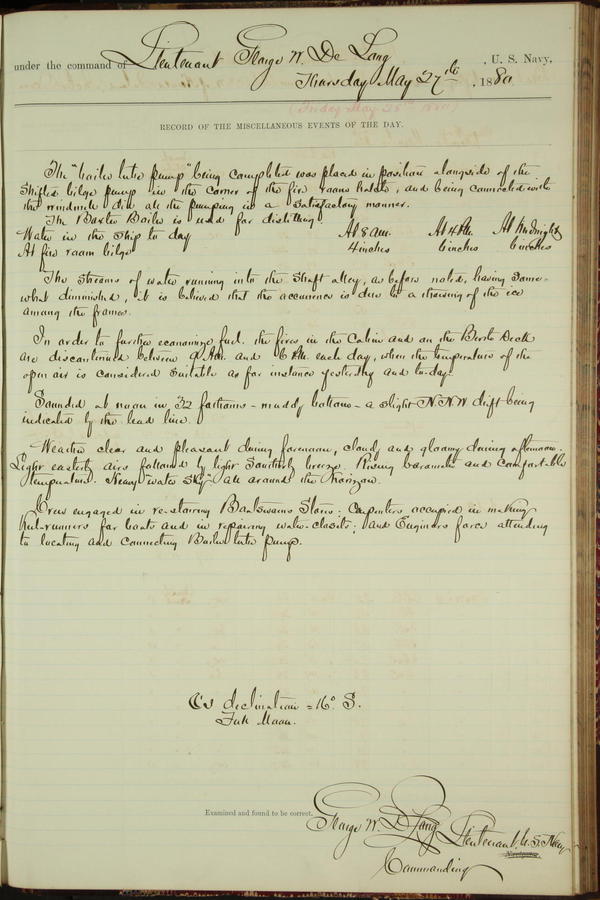 under the command of Lieutenant George W. De Long, U. S. Navy,
Thursday May 27th, 1880
(Friday May 28th 1880)
RECORD OF THE MISCELLANEOUS EVENTS OF THE DAY.
The "boiler tube pump" being completed was placed in position alongside of the
shifted bilge pump in the corner of the fire room hatch, and being connected with
the windmill did all the pumping in a satisfactory manner.
The Baxter Boiler is used for distilling.
Water in the ship to day At 8 a.m. At 4 P.M. At Midnight
At fire room bilge 4 inches 6 inches 6 inches
The streams of water running into the shaft alley, as before noted, having some-
what diminished, it is believed that the occurrence is due to a thawing of the ice
among the frames.
In order to further economize fuel, the fires in the Cabin and on the Berth Deck
are discontinued between 9 A.M. and 6 P.M. each day, when the temperature of the
open air is considered suitable as for instance yesterday and to-day.
Sounded at noon in 32 fathoms - muddy bottom - a slight N.N.W drift being
indicated by the lead line.
Weather clear and pleasant during forenoon, cloudy and gloomy during afternoon.
Light easterly airs followed by light Southerly breeze. Rising barometer and comfortable
temperature. Heavy water sky all around the horizon.
Crew engaged in re-stowing Boatswains Stores; Carpenters occupied in making
keel-runners for boats and in repairing water-closets; and Engineers force attending
to locating and connecting Boiler tube pump.
☾'s declination = 16° S.
Full Moon.
Examined and found to be correct.
George W. De Long Lieutenant, U.S. Navy
Navigator.
Commanding